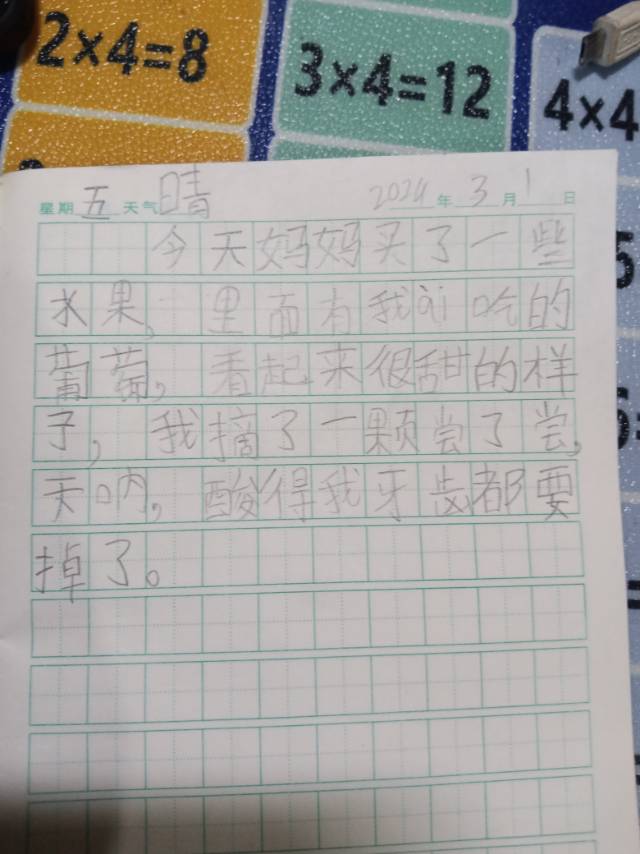 2×4=8
3×4=12
4×4
星期 五 天气 晴 2024 年 3 月 1 日
今天妈妈买了一些
水果,里面有我ài吃的
葡萄,看起来很甜的样
子,我摘了一颗尝了尝,
天呐,酸得我牙齿都要
掉了。